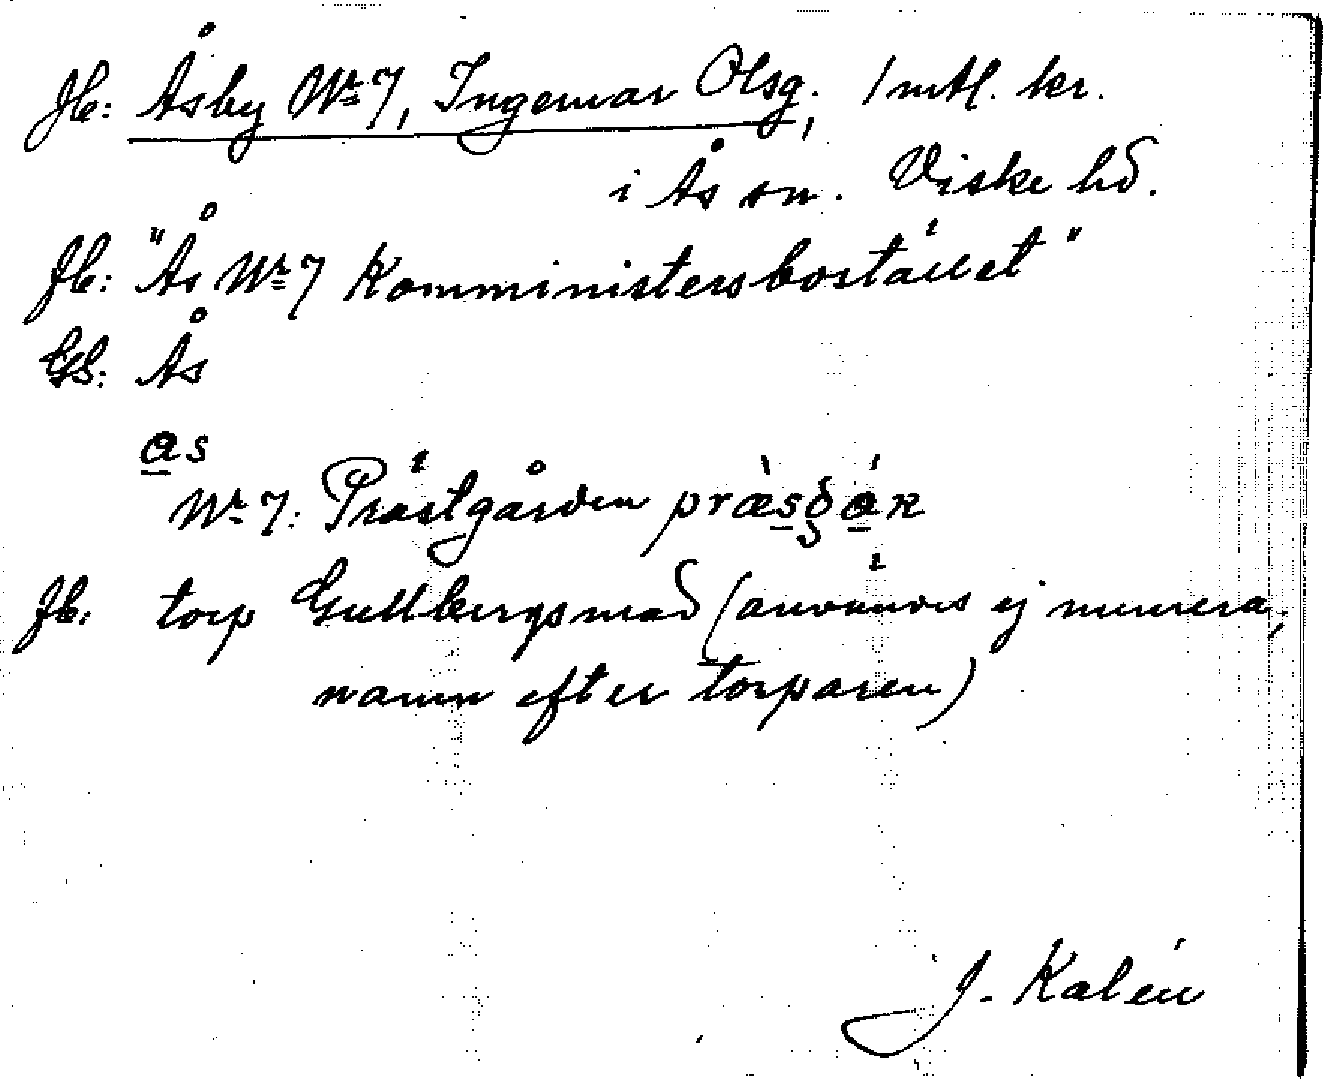 Jb: Åsby Nr 7, Ingemar Olsg., 1 mtl. kr.
i Ås sn. Viske hd.
Jb: "Ås Nr 7 Komministersbostället"
GS: Ås
as
Nr 7: Prästgården
Jb: torp Gullbergsmad (användes ej numera,
namn efter torparen)
J. Kalén